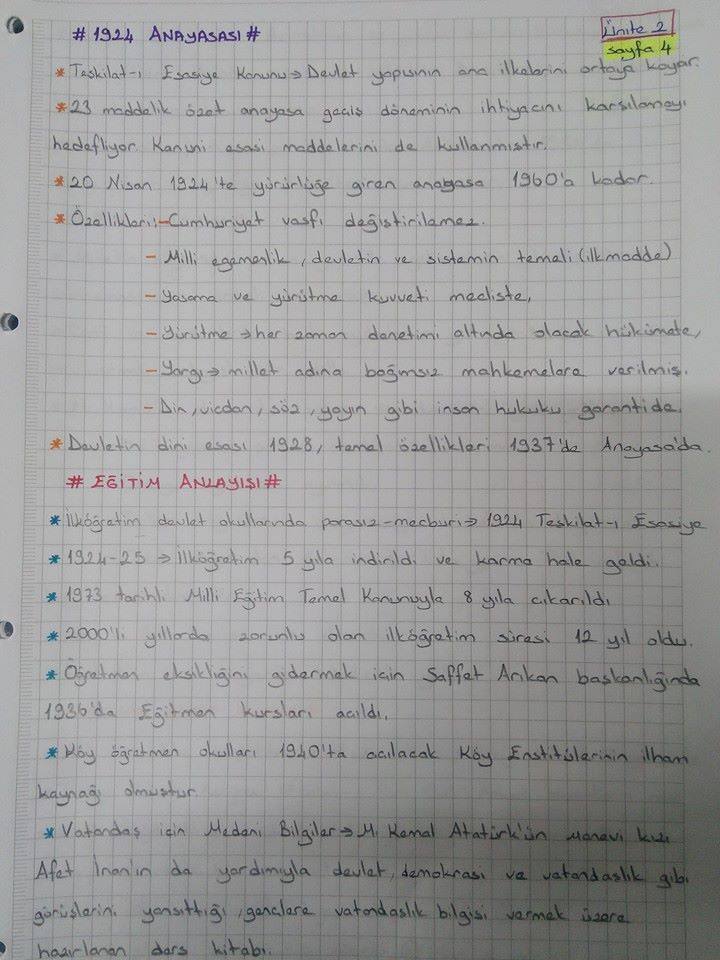 # 1924 ANAYASASI #
Ünite 2
sayfa 4
* Teşkilat-ı Esasiye Konunu → Devlet yapısının ana ilkelerini ortaya koyar.
* 23 maddelik özet anayasa geçiş döneminin ihtiyacını karşılamayı
hedefliyor. Kanuni esasi maddelerini de kullanmıştır.
* 20 Nisan 1924'te yürürlüğe giren anayasa 1960'a kadar.
* Özellikleri:- Cumhuriyet vasfı değiştirilemez.
- Milli egemenlik, devletin ve sistemin temeli (ilk madde)
- Yasama ve yürütme kuvveti mecliste,
- Yürütme → her zaman denetimi altında olacak hükümete,
- Yargı → millet adına bağımsız mahkemelere verilmiş.
- Din, vicdan, söz, yayın gibi insan hukuku garantide.
* Devletin dini esası 1928, temel özellikleri 1937'de Anayasa'da.
# EĞİTİM ANLAYIŞI #
* İlköğretim devlet okullarında parasız-mecburi → 1924 Teşkilat-ı Esasiye
* 1924-25 → İlköğretim 5 yıla indirildi ve karma hale geldi.
* 1973 tarihli Milli Eğitim Temel Kanunuyla 8 yıla çıkarıldı
* 2000'li yıllarda zorunlu olan ilköğretim süresi 12 yıl oldu.
* Öğretmen eksikliğini gidermek için Saffet Arıkan başkanlığında
1936'da Eğitmen kursları açıldı.
* Köy öğretmen okulları 1940'ta açılacak Köy Enstitülerinin ilham
kaynağı olmuştur.
* Vatandaş için Medeni Bilgiler → M. Kemal Atatürk'ün manevi kızı
Afet İnan'ın da yardımıyla devlet, demokrasi ve vatandaşlık gibi
görüşlerini yansıttığı, gençlere vatandaşlık bilgisi vermek üzere
hazırlanan ders kitabı.